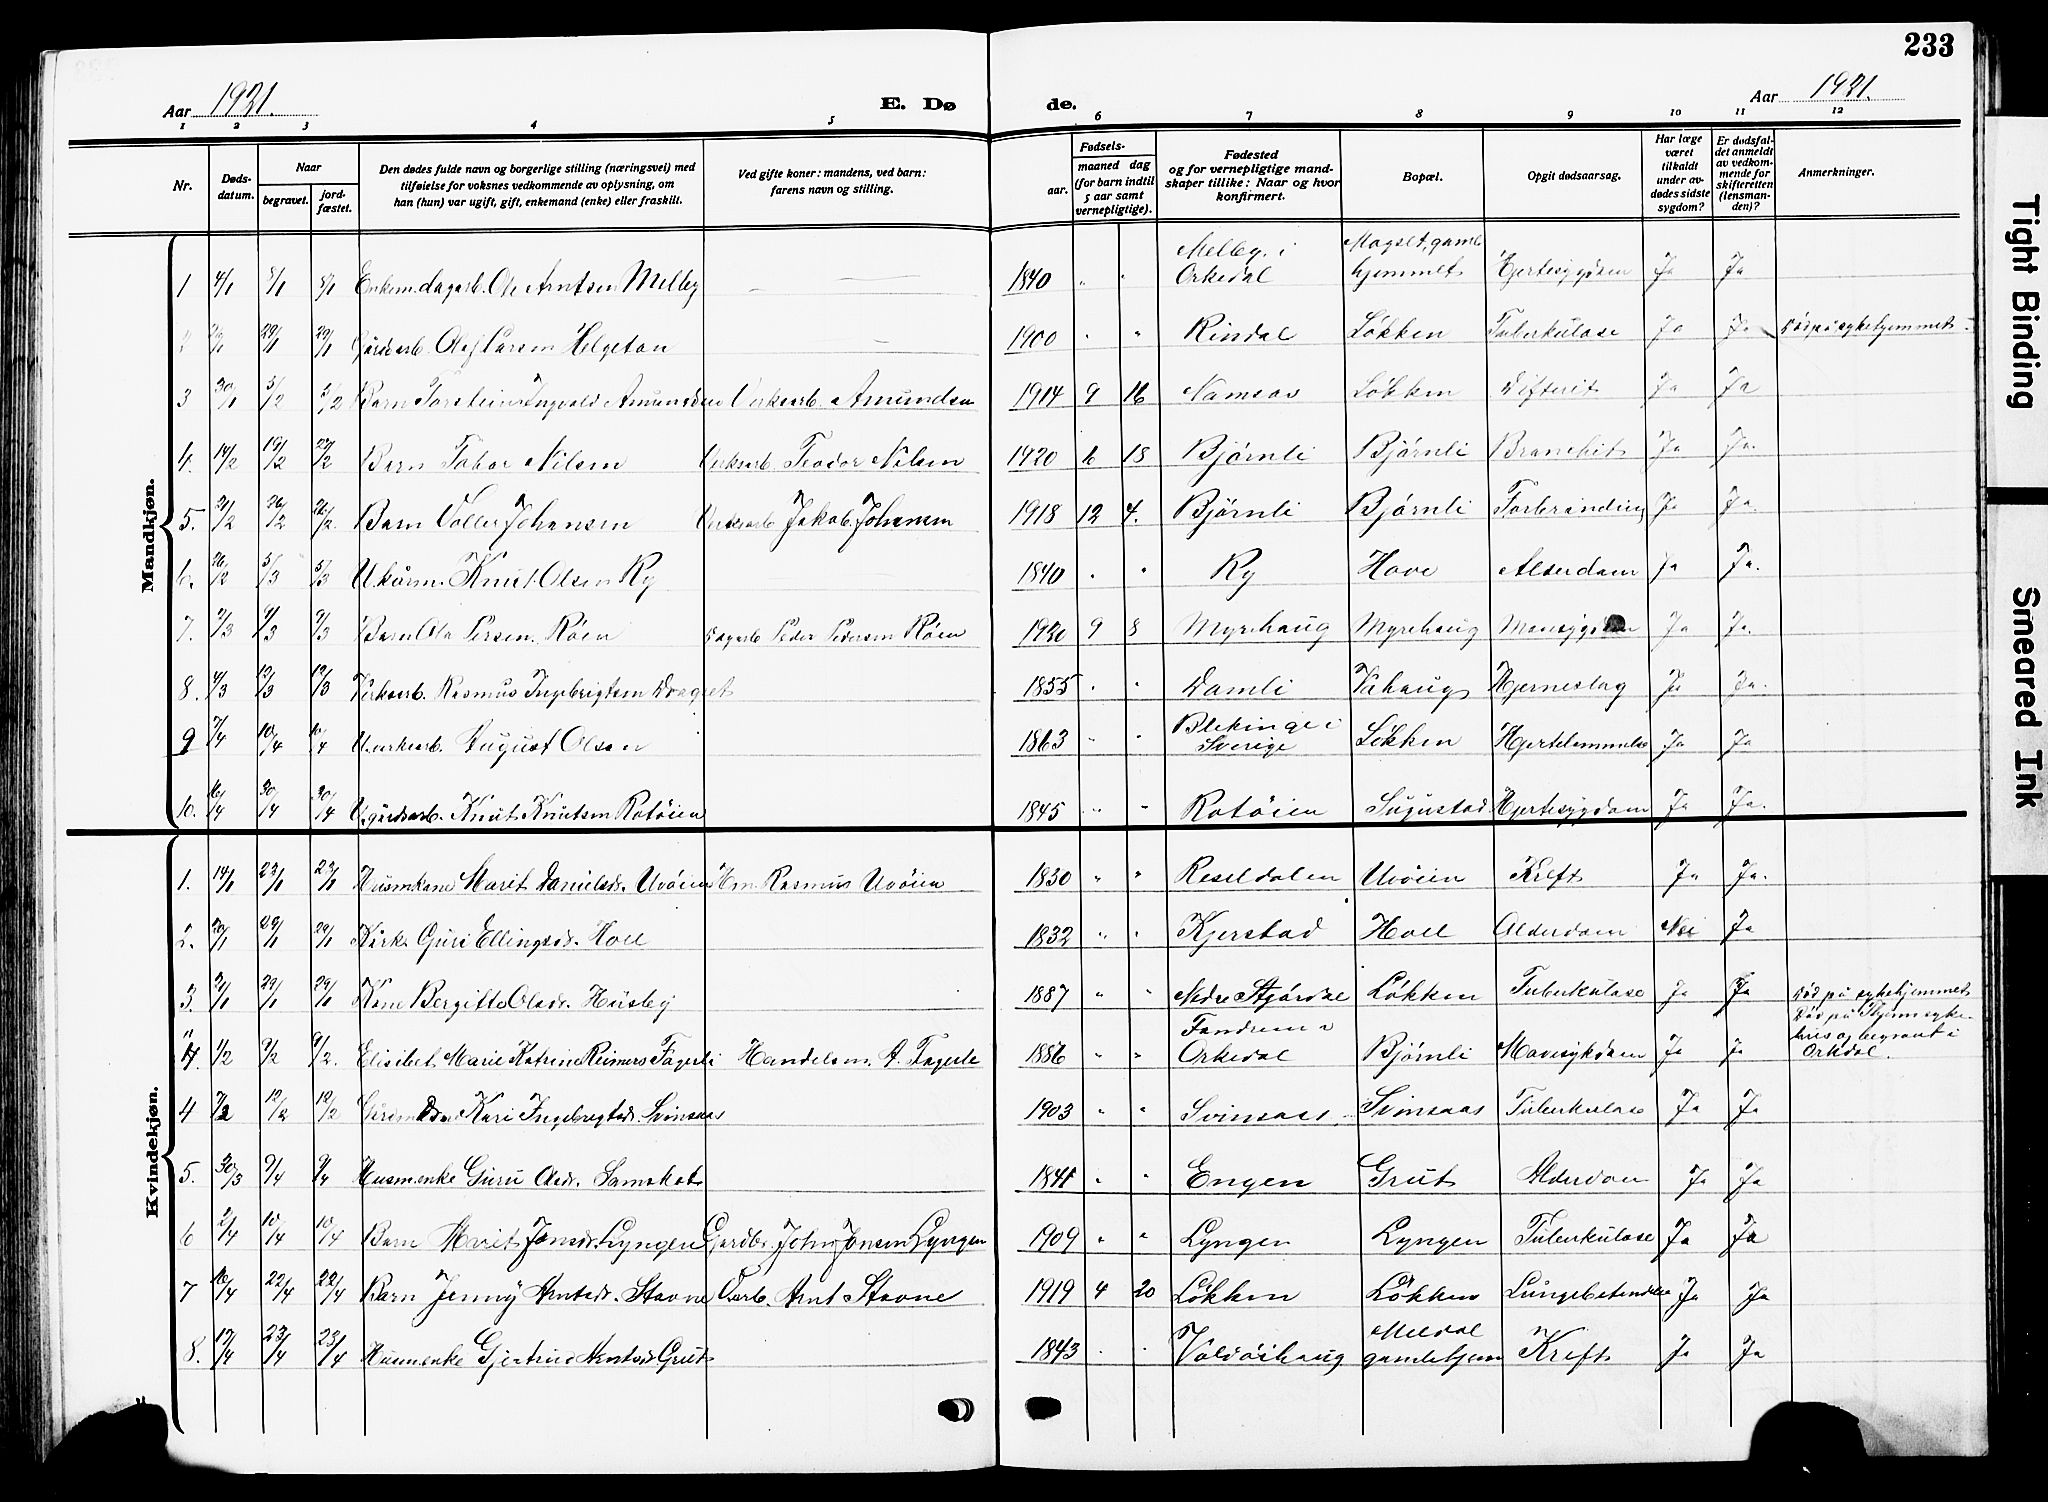 233
Aar 1921.
E. Dø
de.
Aar 1921.
1 2 3 4 5 6 7 8 9 10 11 12
Nr.
Døds-
datum.
Naar
begravet.
jord-
fæstet.
Den dødes fulde navn og borgerlige stilling (næringsvei) med
tilføielse for voksnes vedkommende av oplysning, om
han (hun) var ugift, gift, enkemand (enke) eller fraskilt.
Ved gifte koner: mandens, ved barn:
farens navn og stilling.
Fødsels-
aar.
maaned dag
(for barn indtil
5 aar samt
vernepligtige).
Fødested
og for vernepligtige mand-
skaper tillike: Naar og hvor
konfirmert.
Bopæl.
Opgit dødsaarsag.
Har læge
været
tilkaldt
under av-
dødes sidste
sygdom?
Er dødsfal-
det anmeldt
av vedkom-
mende for
skifteretten
(lensman-
den)?
Anmerkninger.
Mandkjøn.
1 4/1 8/1 8/1 Enkem. dagarb. Ole Arntsen Melby 1840 Melby i Orkedal hjemmet Hjertesygdom Ja Ja
29/1 29/1 Gårdarb. Olaf Larsen Helgetun 1900 Rindal Løkken Tuberkulose Ja Ja Død på sykehjemmet.
3 30/1 5/2 5/2 Barn Torstein Ingvald Amundsen Verksarb. Amundsen 1914 9 16 Namsos Løkken Difterit Ja Ja
4. 14/2 19/2 Barn Nilsen Verksarb. Teodor Nilsen 1920 6 18 Bjørnli Bjørnli Ja Ja.
5. 21/2 26/2 26/2. Barn Johansen Verksarb. Jakob Johansen 1918 12 4. Bjørnli Bjørnli Forbrænding Ja Ja.
6. 26/2 5/3 5/3 Knut Olsen Ry 1840 Ry Hove Alderdom Ja Ja.
7. 9/3 9/3 Barn Ola Persen Røen Dagarb. Peder Pedersen Røen 1920 9 8 Myrehaug Myrehaug Ja Ja.
8. 4/3 12/3 12/3 Verksarb. Rasmus Ingebrigtsen Dragset 1855 Damli Hjerneslag Ja Ja.
9 7/4 10/4 10/4 August Olsen 1863 Blekinge i Sverige Løkken Hjertelammelse Ja Ja
10. 16/4 30/4 30/4 Knut Knutsen Rotøien 1845 Rotøien Hjertesygdom Ja Ja.
Kvindekjøn.
1. 14/1 22/1 Husmkone Marit Danielsdr. Uvøien Hm. Rasmus Uvøien 1830 Reseldalen Uvøien Kreft Ja Ja.
2. 20/1 29/1 29/1 Guri Ellingsdr. Holl 1832 Kjerstad Holl Alderdom Nei Ja
3. 21/1 29/1 29/1 Kone Bergitte Olsdr. Husby 1887 Nedre Stjørdal Løkken Tuberkulose Ja Ja Død på sykehjemmet
4. 1/2 9/2 9/2. Elisabet Marie Katrine Reimers Fagerli Handelsm. A. Fagerli 1886 Fandrem i Orkedal Bjørnli Mavesykdom Ja Ja Død på Thjems syke-
hus og begravet i
Orkdal.
4 7/2 12/2 12/2 Kari Ingebrigtsdr. Svinsaas 1903 Svinsaas Svinsaas Tuberkulose Ja Ja
5. 30/3 9/4 9/4 Husmenke Guru Olsdr. Lamskot 1841 Engen Grut Alderdom Ja Ja
6 2/4 10/4 10/4 Barn Marit Jonsdr. Lyngen Gardbr. John Jonsen Lyngen 1909 Lyngen Lyngen Tuberkulose Ja Ja
7 16/4 22/4 22/4 Barn Jenny Arntsdr. Stavne Arnt Stavne 1919 4 20 Løkken Løkken Lungebetændelse Ja Ja
8. 17/4 23/4 23/4 Husmenke Gjertrud Arntsdr. Grut 1843 Meldal gamlehjem Kreft Ja Ja
Tight Binding
Smeared Ink